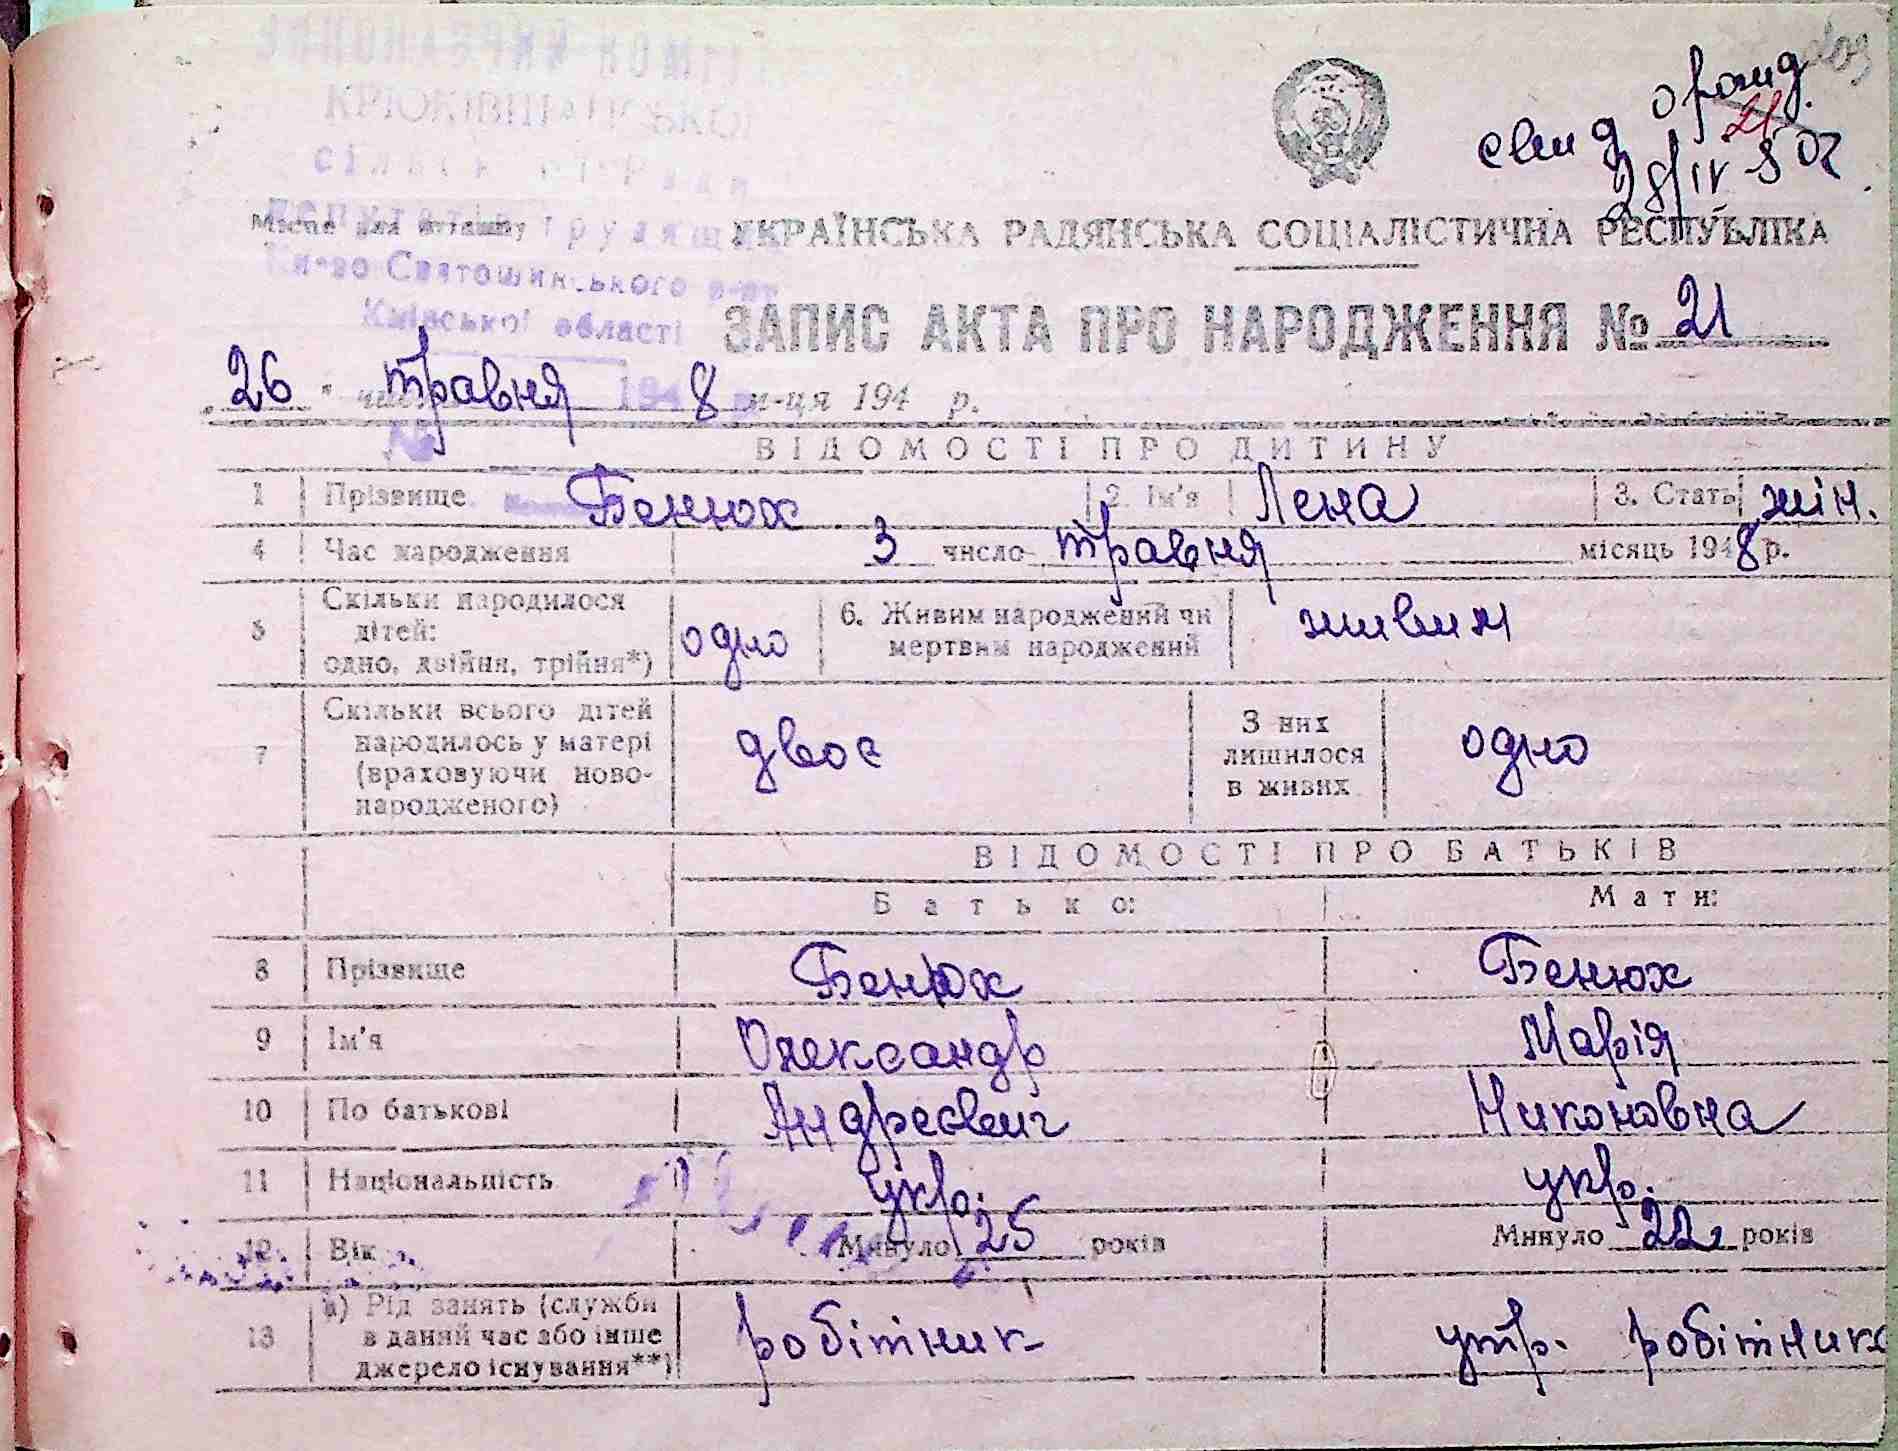 свид
28/IV
УКРАЇНСЬКА РАДЯНСЬКА СОЦІАЛІСТИЧНА РЕСПУБЛІКА
Місце для штампу
КРЮКІВЩАНСЬКОЇ
Києво Святошинського р-ну
Київської області
ЗАПИС АКТА ПРО НАРОДЖЕННЯ № 21
„26" травня 8 м-ця 194 р.
ВІДОМОСТІ ПРО ДИТИНУ
1 Прізвище Бенюх 2. Ім'я Лена 3. Стать жін.
4 Час народження 3 число травня місяць 1948 р.
5 Скільки народилося дітей: одно, двійня, трійня*) одно 6. Живим народжений чи мертвим народжений живим
7 Скільки всього дітей народилось у матері (враховуючи ново-народженого) двоє З них лишилося в живих одно
ВІДОМОСТІ ПРО БАТЬКІВ
Батько: Мати:
8 Прізвище Бенюх Бенюх
9 Ім'я Олександр Марія
10 По батькові Андреєвич Никоновна
11 Національність укр. укр.
12 Вік Минуло 25 років Минуло 22 років
13 а) Рід занять (служби в даний час або інше джерело існування**) робітник утр. робітника